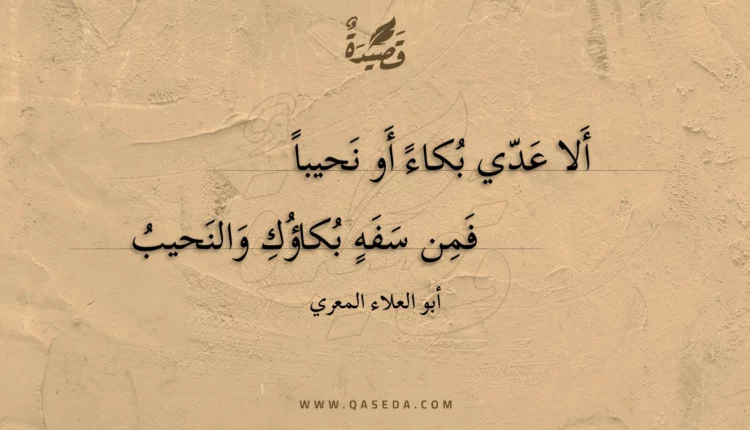 قَصِيْدَةٌ
أَلا عَدّي بُكاءً أَو نَحيباً
فَمِن سَفَهٍ بُكاؤُكِ وَالنَحيبُ
أبو العلاء المعري
WWW.QASEDA.COM